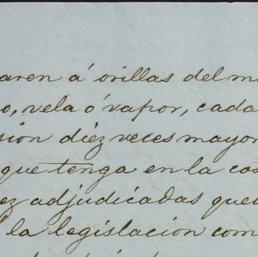 aren á orillas del m
o, vela ó vapor, cada
sion diéz veces mayor
que tenga en la cos
ez adjudicadas que
la legislacion com